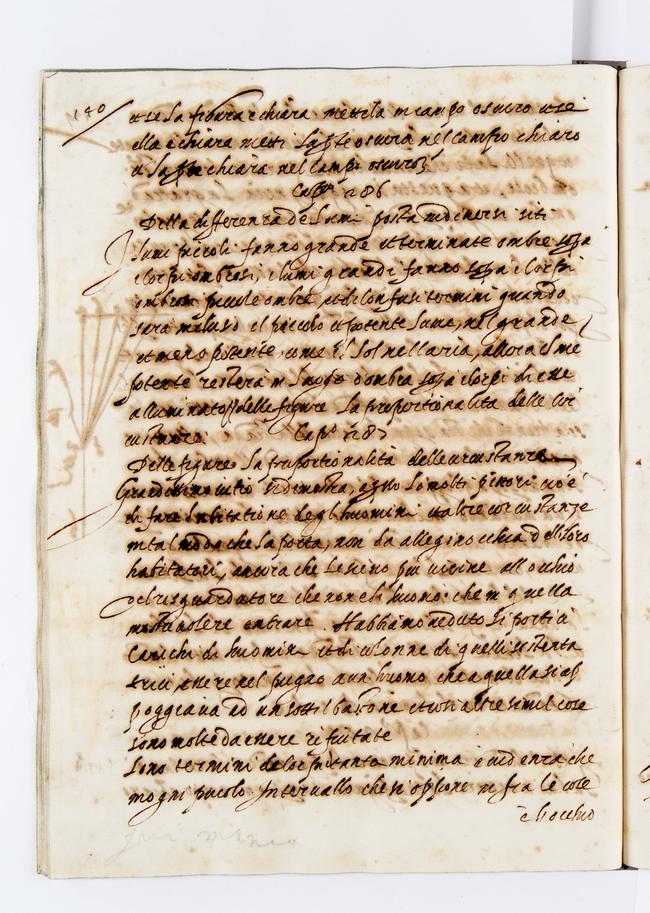 140
et se la figura è chiara mettila in campo oscuro et se
ella è chiara metti la pte oscura nel campo chiaro
e la pte chiara nel campo oscuro
Capº 286
Della differenza de lumi posta in diversi siti
I lumi piccoli fanno grande et terminate ombre sopa
i corpi ombrosi, i lumi grandi fanno sopa i corpi
ombrosi piccole ombre, et di confusi termini quando
sara incluso il piccolo e potente lume, nel grande
et meno potente, come il sol nell aria, allora il me
potente resterà in luogo d ombra sopa i corpi di esse
alluminato delle figure la proportionalita delle cir
custanze. Capº 287
Delle figure la proportionalità delle circustanze
Grandissimo vitio si dimostra, apsso di molti pittori cio è
di fare l abitatione degl huomini et altre circustanze
in tal modo che la porta, non da alle ginocchia d di loro
habitatori, ancora che le sieno piu vicine all occhio
del resguardatore che non è l huomo che in quella
mostra volere entrare. Habbiamo veduto li portici
carichi di huomini et di colonne di quelli sustenta
trici essere nel pugno a un huomo che a quella si ap
poggiava ad un sottil bastone et con altre simil cose
sono molto da essere refiutate
Sono termini de corpi tanta minima evidenza che
in ogni piccolo intervallo che si oppone in fra le cose
è l occhio